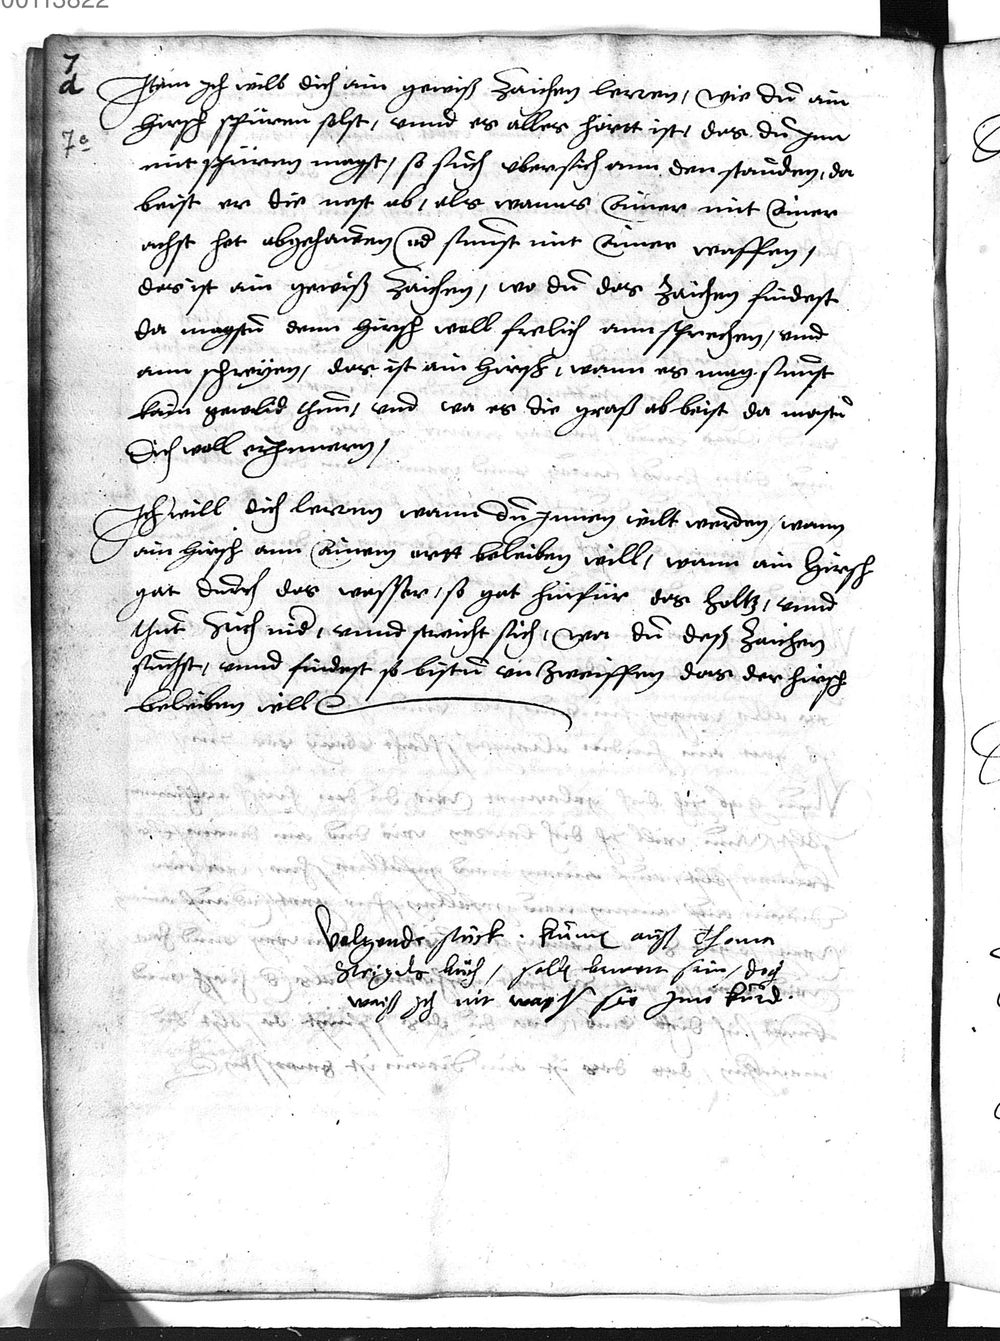 00113822
7
d
7a
Item Ich will dich ain gewiß Zaichen lerren, wie du ain
Hirsch spüren solst, vnnd es alles hörtt ist, das du Inn
nit spüren magst, so such vbersich ann den stauden, da
beist er die nest ab, als wanns Einer mit Einer
achst het abgehauwen od sunst mit Einer waffen,
das ist ain gewiß Zaichen, wo du das Zaichen findest
da magstu denn Hirsch woll frelich ann sprechen, vnnd
ann schreyen, das ist ain Hirsch, wann es mag sunst
kain gewild thun, vnd wa es die graß ab beist da mastu
Dich woll erInnern,
Ich will dich lerren wann du Innen wilt werden, wann
ain Hirsch ann Einem ortt beleiben will, wann ain Hirsch
gat durch das wasser, so gat hinfür das holtz, vnnd
thut sich nid, vnnd streicht sich, wa du deß Zaichen
suchst, vnnd findest so bistu on Zweiffen das der Hirsch
beleiben will
Volgende stuck kumt auß Thoma
buch, sollen sein, doch
waiß Ich nit sie Inn